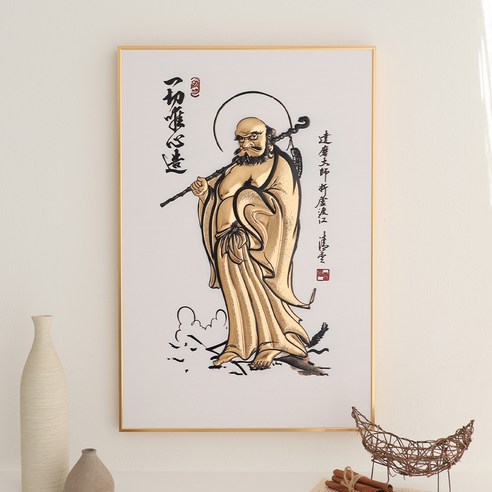 一切唯心造
達磨大師折蘆渡江